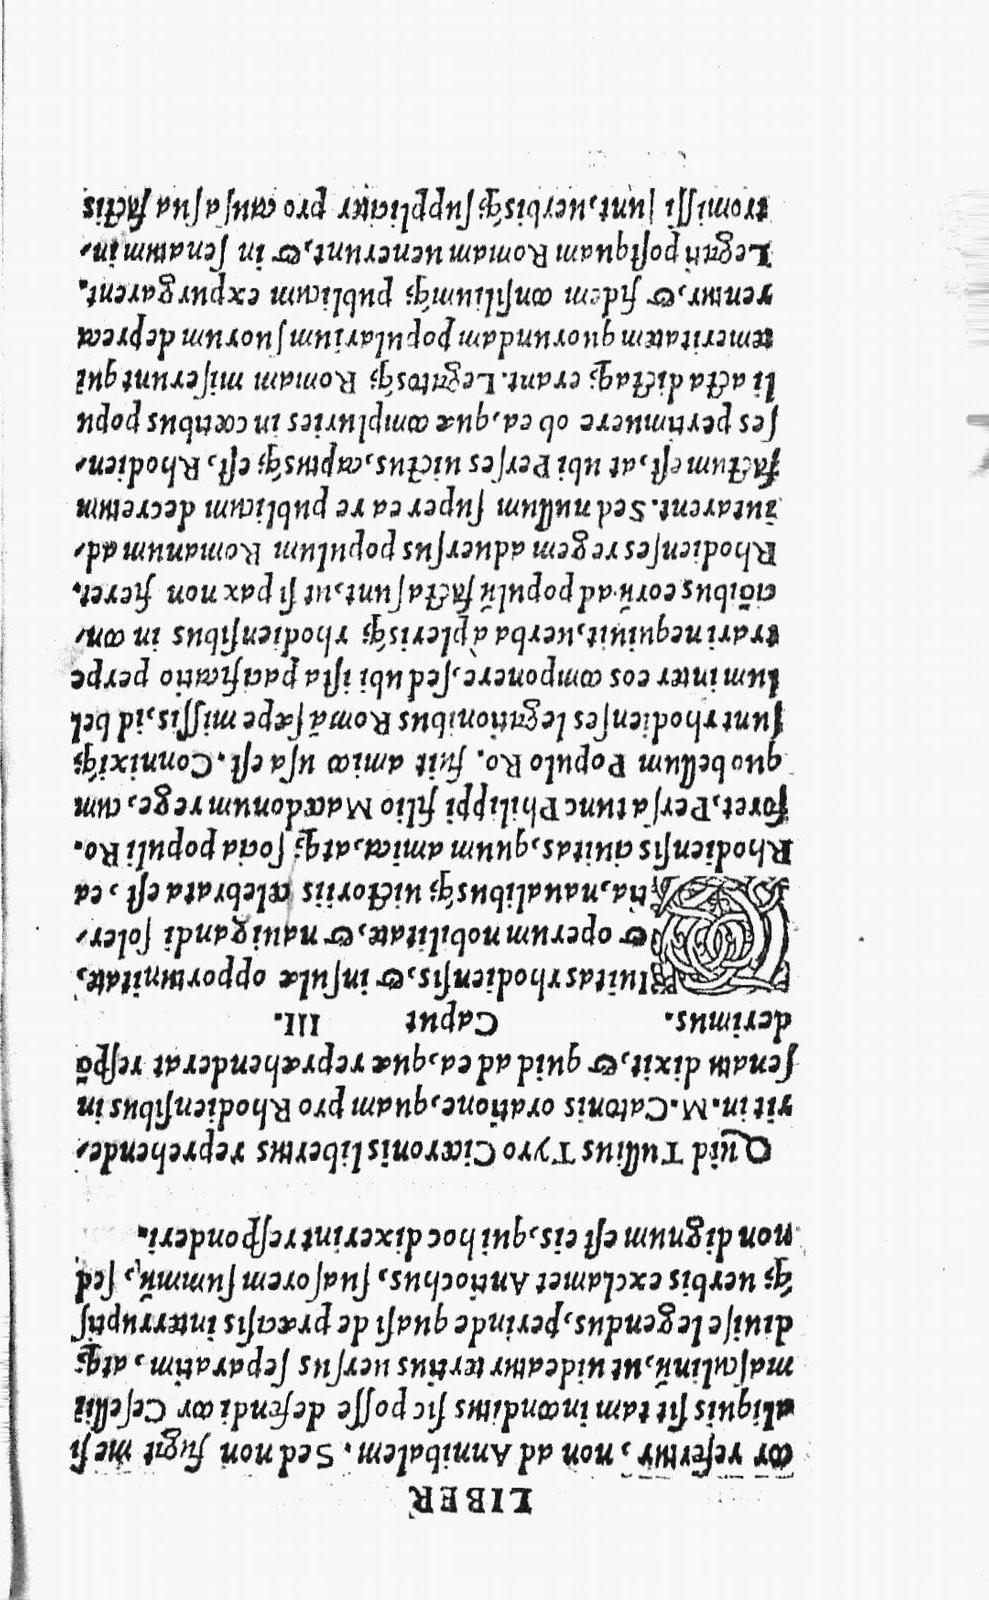 LIBER
cor refertur, non ad Annibalem. Sed non fugit me si
aliquis sit tam inconditus sic posse defendi cor Cesellii
masculinũ, ut uideatur tertius uersus separatim, atq;
diuise legendus, perinde quasi de præcisis interruptis
q́; uerbis exclamet Antiochus, suasorem summũ, sed
non dignum est eis, qui hoc dixerint responderi.
Quid Tullius Tyro Ciceronis libertus reprehende/
rit in. M. Catonis oratione, quam pro Rhodiensibus in
senatu dixit, & quid ad ea, quæ repræhenderat respõ
derimus. Caput III.
Iuitas rhodiensis, & insulæ opportunitate,
& operum nobilitate, & nauigandi soler/
tia, naualibusq́; uictoriis celebrata est, ea
Rhodiensis ciuitas, quum amica, atq; socia populi Ro.
foret, Persa tunc Philippi filio Macedonum rege, cum
quo bellum Populo Ro. fuit amico usa est. Connixiq́;
sunt rhodienses legationibus Romã sæpe missis, id bel
lum inter eos componere, sed ubi ista pacificatio perpe
trari nequiuit, uerba à plerisq́; rhodiensibus in con/
ciõibus eorũ ad populũ facta sunt, ut si pax non fieret,
Rhodienses regem aduersus populum Romanum ad/
iutarent. Sed nullum super ea re publicum decretum
factum est, at ubi Perses uictus, captusq́; est, Rhodien/
ses pertimuere ob ea, quæ compluries in cœtibus popu
li acta dictaq; erant. Legatosq́; Romam miserunt qui
temeritatem quorundam popularium suorum depreca
rentur, & fidem consiliumq́; publicum expurgarent.
Legati postquam Romam uenerunt, & in senatum in/
tromissi sunt, uerbisq́; suppliciter pro causa sua factis